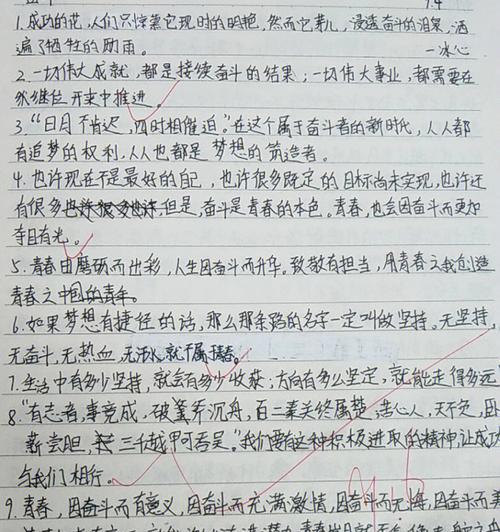 9.4
1.成功的花,人们只惊羡它现时的明艳,然而它芽儿,浸透奋斗的泪泉,洒
遍了牺牲的血雨。 —冰心
2.一切伟大成就,都是接续奋斗的结果;一切伟大事业,都需要在
继往开来中推进。
3.“日月不肯迟,四时相催迫。”在这个属于奋斗者的新时代,人人都
有追梦的权利,人人也都是梦想的筑造者。
4.也许现在不是最好的自己,也许很多既定的目标尚未实现,也许还
有很多也许很多也许,但是,奋斗是青春的本色。青春,也会因奋斗而更加
夺目有光。
5.青春由磨砺而出彩,人生因奋斗而升华。致敬有担当,用青春之我创造
青春之中国的青年。
6.如果梦想有捷径的话,那么那条路的名字一定叫做坚持。无坚持,
无奋斗,无热血,无汗水就不属于青春。
7.生活中有多少坚持,就会有多少收获;方向有多么坚定,就能走得多远
8.“有志者,事竟成,破釜沉舟,百二秦关终属楚;苦心人,天不负,卧
薪尝胆,三千越甲可吞吴。”我们要有这种积极进取的精神,让成功
与我们相行。
9.青春,因奋斗而有意义,因奋斗而充满激情,因奋斗而无悔,因奋斗而